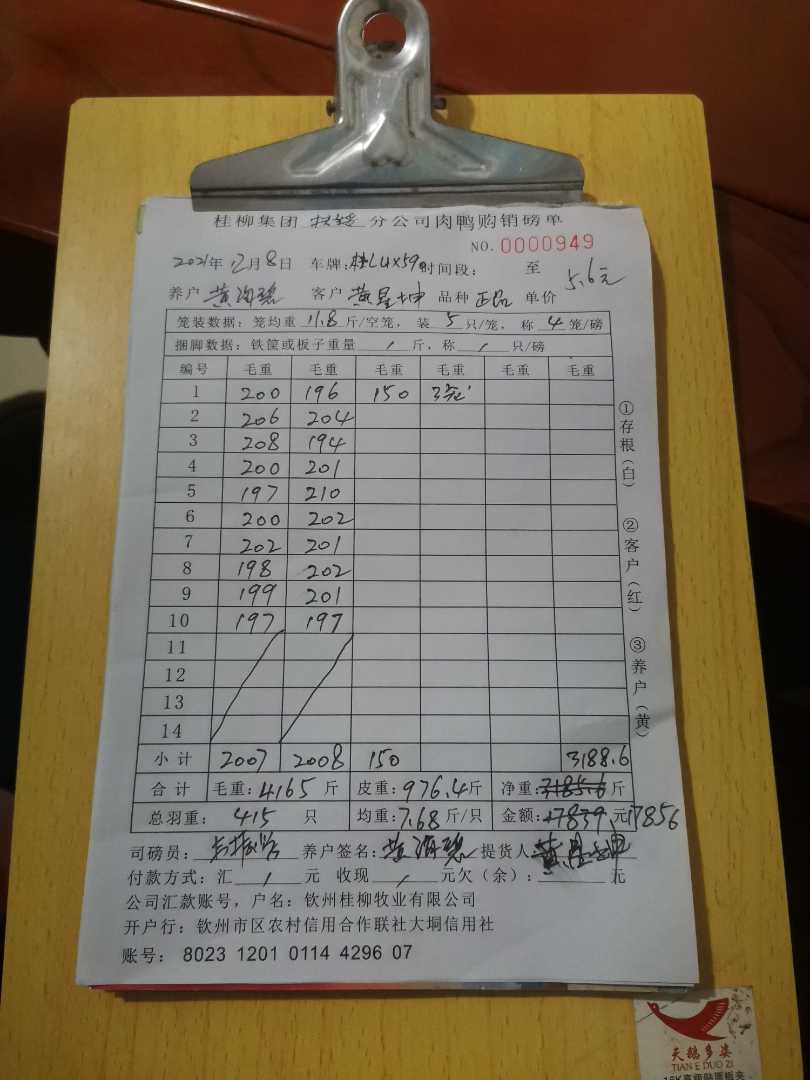 桂柳集团 分公司肉鸭购销磅单
NO. 0000949
2021年12月8日 车牌:桂LUX590 时间段: 至
养户 黄海 客户 黄星坤 品种 正品 单价 5.6元
笼装数据: 笼均重 11.8 斤/空笼, 装 5 只/笼, 称 4 笼/磅
捆脚数据: 铁筐或板子重量 / 斤, 称 / 只/磅
编号 毛重 毛重 毛重 毛重 毛重 毛重
1 200 196 150 3笼
2 206 204
3 208 194
4 200 201
5 197 210
6 200 202
7 202 201
8 198 202
9 199 201
10 197 197
11
12
13
14
小计 2007 2008 150 3188.6
合计 毛重:4165 斤 皮重:976.4斤 净重:3185.6斤
总羽重: 415 只 均重:7.68斤/只 金额:17839元 17856
司磅员: 养户签名:黄海 提货人:黄星坤
付款方式: 汇 / 元 收现 / 元欠(余): 元
公司汇款账号, 户名: 钦州桂柳牧业有限公司
开户行: 钦州市区农村信用合作联社大垌信用社
账号: 8023 1201 0114 4296 07
①存根(白) ②客户(红) ③养户(黄)
天鹅多姿
TIAN E DUO ZI